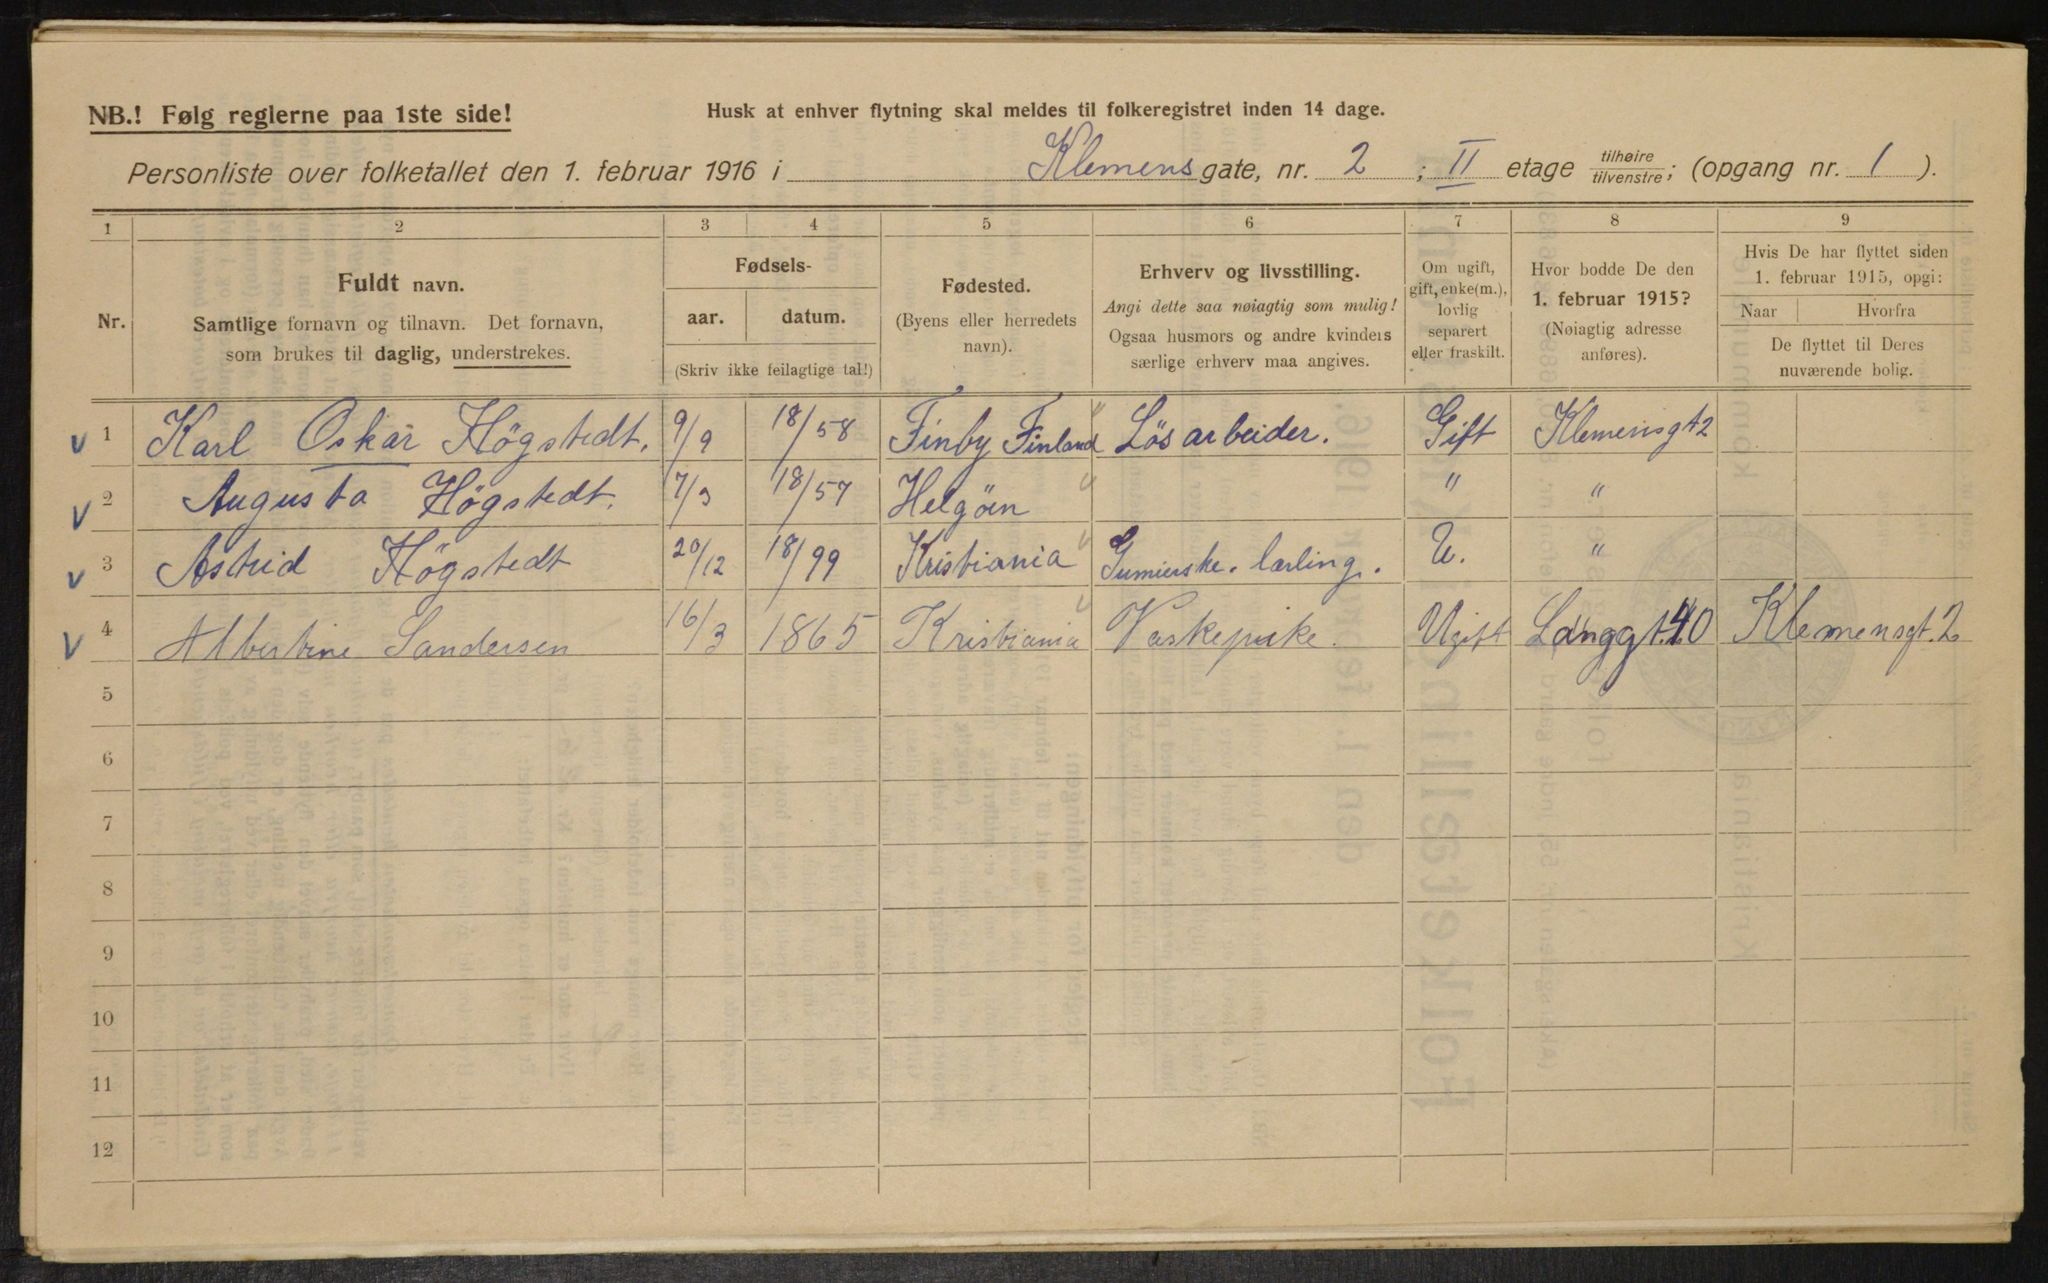 NB.! Følg reglerne paa 1ste side!
Husk at enhver flytning skal meldes til folkeregistret inden 14 dage.
Personliste over folketallet den 1. februar 1916 i Klemens gate, nr. 2 ; II etage tilhøire/tilvenstre; (opgang nr. 1 ).
1 2 3 4 5 6 7 8 9
Nr.
Fuldt navn.
Samtlige fornavn og tilnavn. Det fornavn,
som brukes til daglig, understrekes.
Fødsels-
aar. datum.
(Skriv ikke feilagtige tal!)
Fødested.
(Byens eller herredets
navn).
Erhverv og livsstilling.
Angi dette saa nøiagtig som mulig!
Ogsaa husmors og andre kvinders
særlige erhverv maa angives.
Om ugift,
gift, enke(m.),
lovlig
separert
eller fraskilt.
Hvor bodde De den
1. februar 1915?
(Nøiagtig adresse
anføres).
Hvis De har flyttet siden
1. februar 1915, opgi:
Naar Hvorfra
De flyttet til Deres
nuværende bolig.
v 1 Karl Oskar Högstedt. 9/9 18/58 Finby Finland Lösarbeider. Gift Klemensgt 2
v 2 Augusta Högstedt. 7/3 18/57 Helgöen " "
v 3 Astrid Högstedt 20/12 18/99 Kristiania lærling. U. "
v 4 Albertine Sandersen 16/3 1865 Kristiania Vaskepike. Ugift Langgt. 40 Klemensgt. 2
5
6
7
8
9
10
11
12